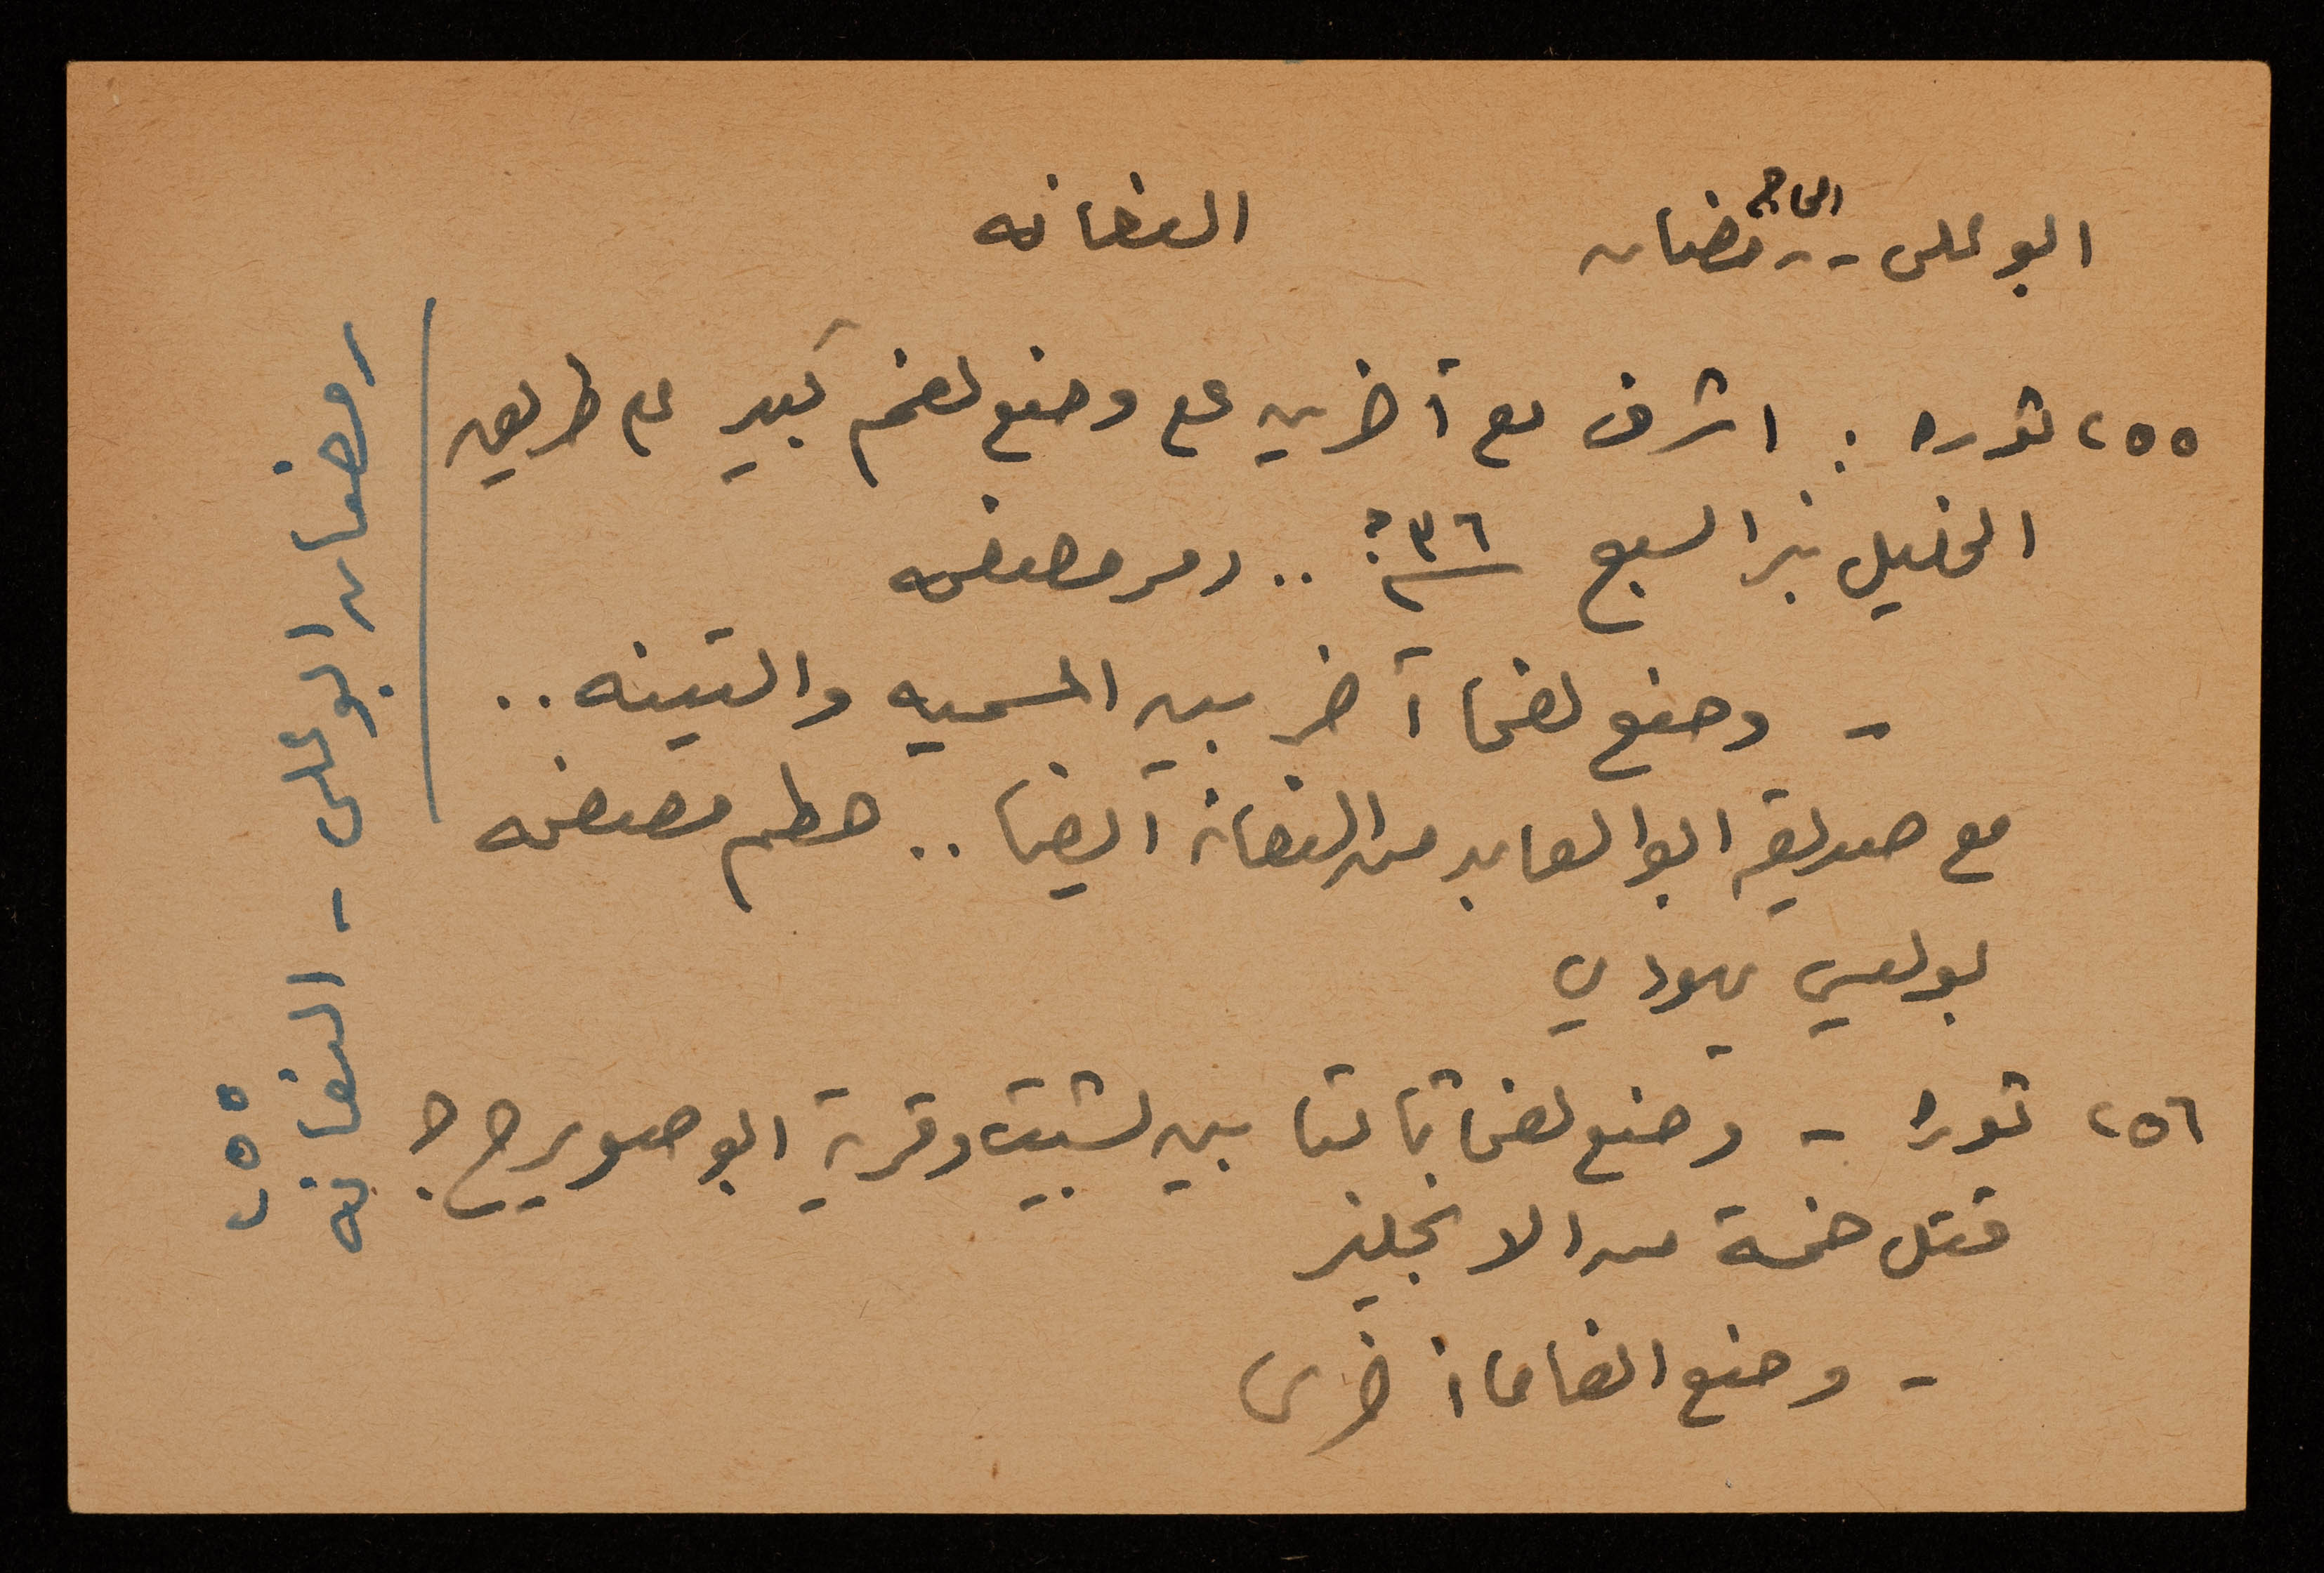 ابو علي - الحاج رمضان    النعانه
٢٥٥ ثوره : اشرف مع آخرين على وضع لغم كبير على طريق
الخليل بئر السبع ٣٦م ؟ .. دمر مصفحه
- وضع لغما آخر بين المسميه والتينه ..
مع صديقه ابو العابد من النعانه ايضا .. حطم مصفحه
بوليس يهودي
٢٥٦ ثوره - وضع لغما ثالثا بين بشيت وقرية ابو صويرح ج
قتل خمسة من الانجليز
- وضع الغاما اخرى
رمضان ابو علي - النعانه
٢٥٥